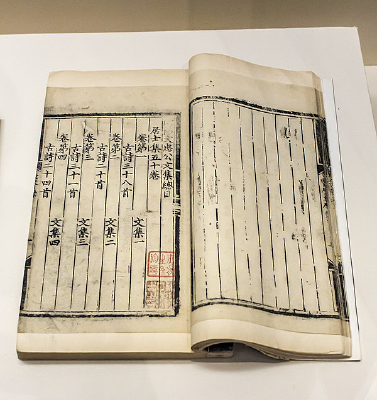 忠公文集總目
居士集五十卷
卷第一 文集一
古詩三十八首
卷第二 文集二
古詩二十首
卷第三 文集三
古詩三十一首
卷第四 文集四
古詩二十四首